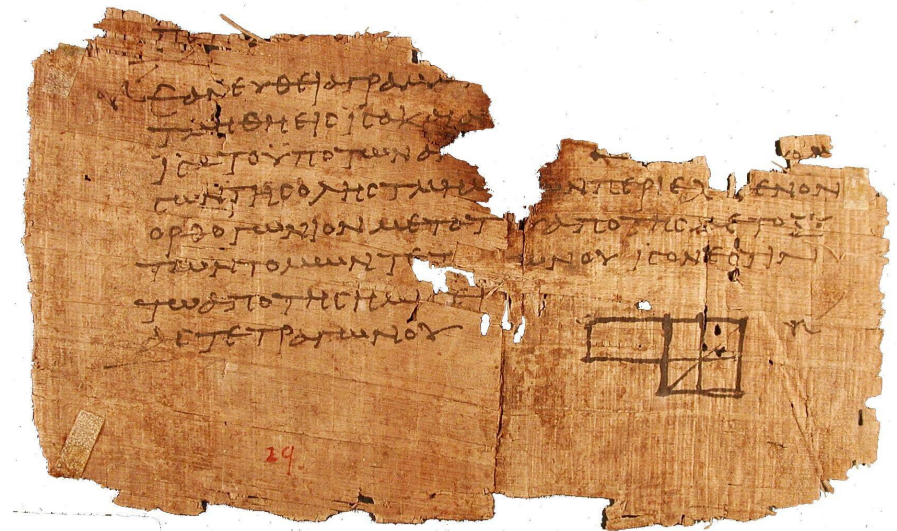 ΕΑΝΕΥΘΕΙΑΓΡΑΜΜ
ΤΜΗΘΗΕΙϹΙϹΑΚΑΙΑ
ΙϹΑΤΟΥΠΟΤΩΝΑ
ϹΩΝΤΗϹΟΛΗϹΤΜΗΜ ΝΠΕΡΙΕΧ ΕΝΟΝ
ΟΡΘΟΓΩΝΙΟΝΜΕΤΑΤ ΥΑΠΟΤΗϹΜΕΤΟΞΥ
ΤΩΝΤΟΜΩΝΤΕΤ ΩΝΟΥΙϹΟΝΕϹΤΙΝ
ΤΩΑΠΟΤΗϹΗΜΙϹΕΙ
ΑϹΤΕΤΡΑΓΩΝΟΥ
29